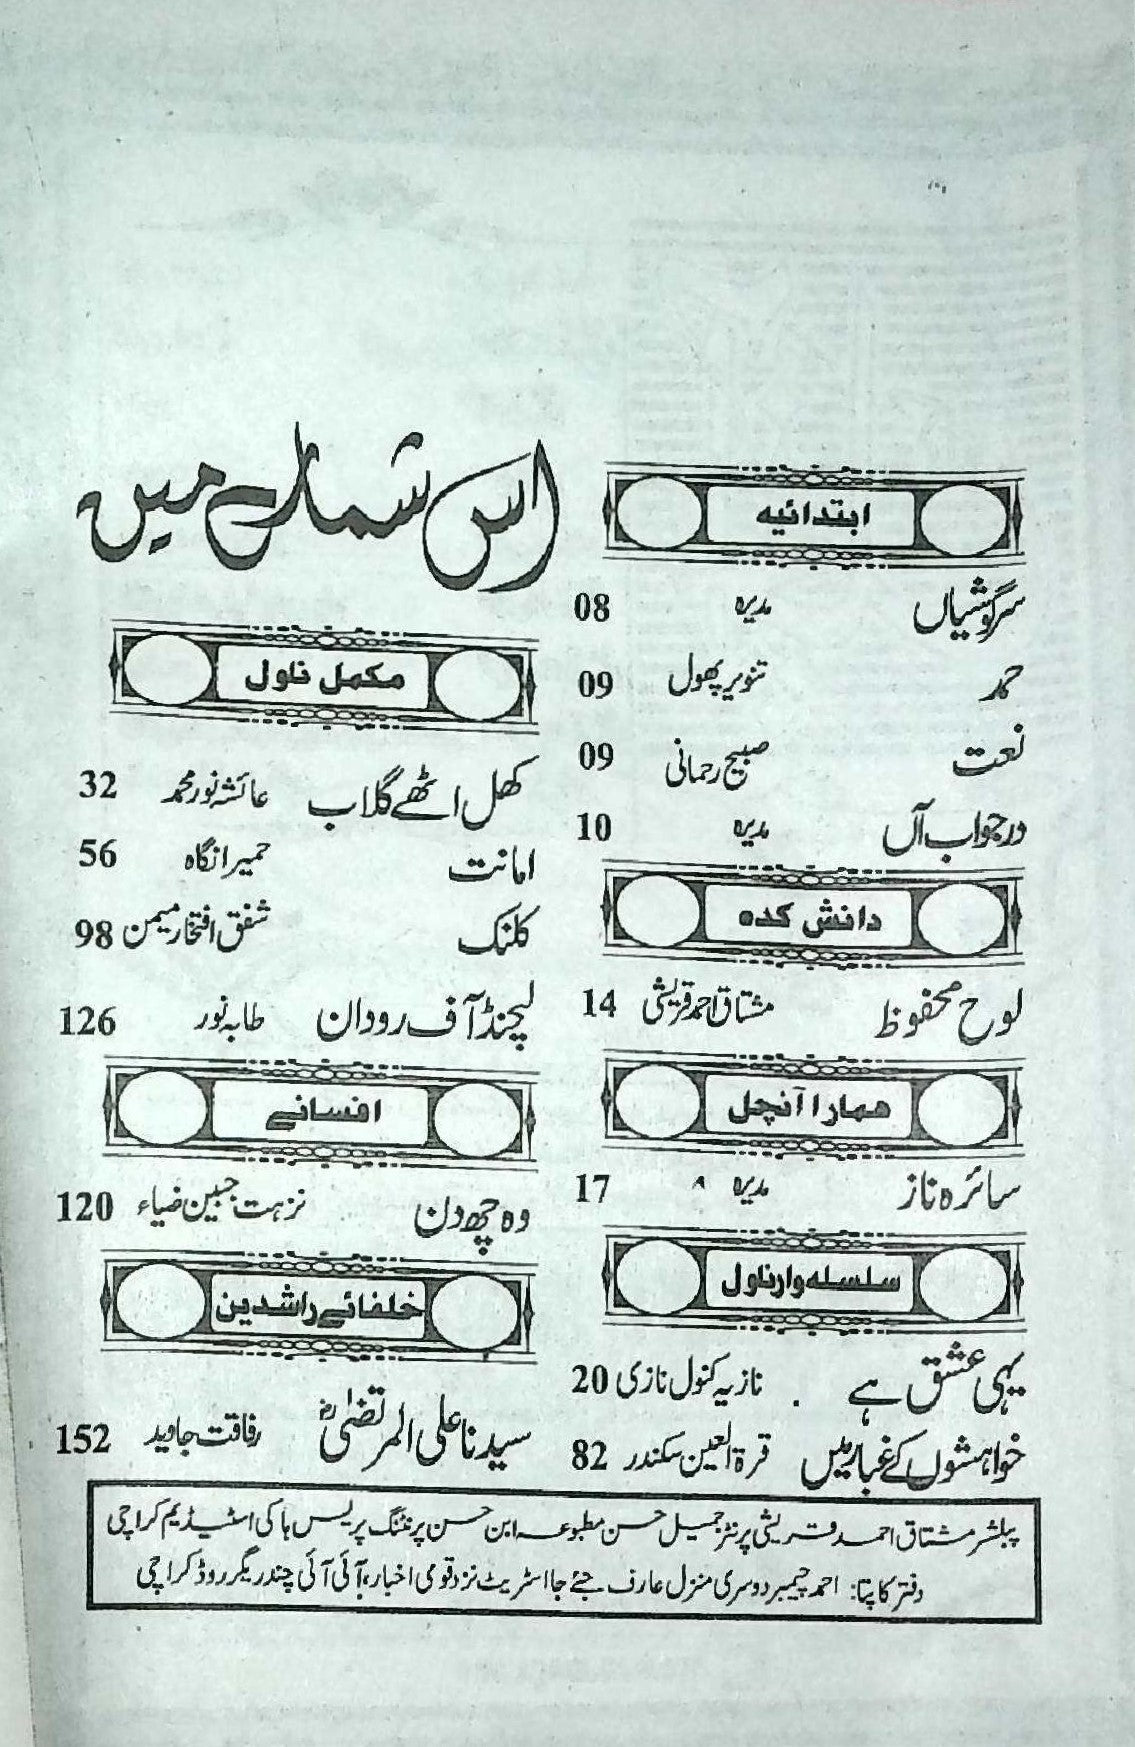 اس شمارے میں
ابتدائیہ
سرگوشیاں مدیرہ 08
حمد تنویر پھول 09
نعت صبیح رحمانی 09
در جواب آں مدیرہ 10
دانش کدہ
لوح محفوظ مشتاق احمد قریشی 14
ہمارا آنچل
سائرہ ناز مدیرہ 17
سلسلہ وار ناول
یہی عشق ہے نازیہ کنول نازی 20
خواہشوں کے غبار میں قرۃ العین سکندر 82
مکمل ناول
کھل اٹھے گلاب عائشہ نور محمد 32
امانت حمیرا نگاہ 56
کلنک شفق افتخار میمن 98
لیجنڈ آف رودان طابہ نور 126
افسانے
وہ چھ دن نزہت جبین ضیاء 120
خلفائے راشدین
سیدنا علی المرتضیٰؓ رفاقت جاوید 152
پبلشر مشتاق احمد قریشی پرنٹر جمیل حسن مطبوعہ ابن حسن پرنٹنگ پریس ہاکی اسٹیڈیم کراچی
دفتر کا پتا: احمد چیمبر دوسری منزل عارف جئے جا اسٹریٹ نزد قومی اخبار، آئی آئی چندریگر روڈ کراچی